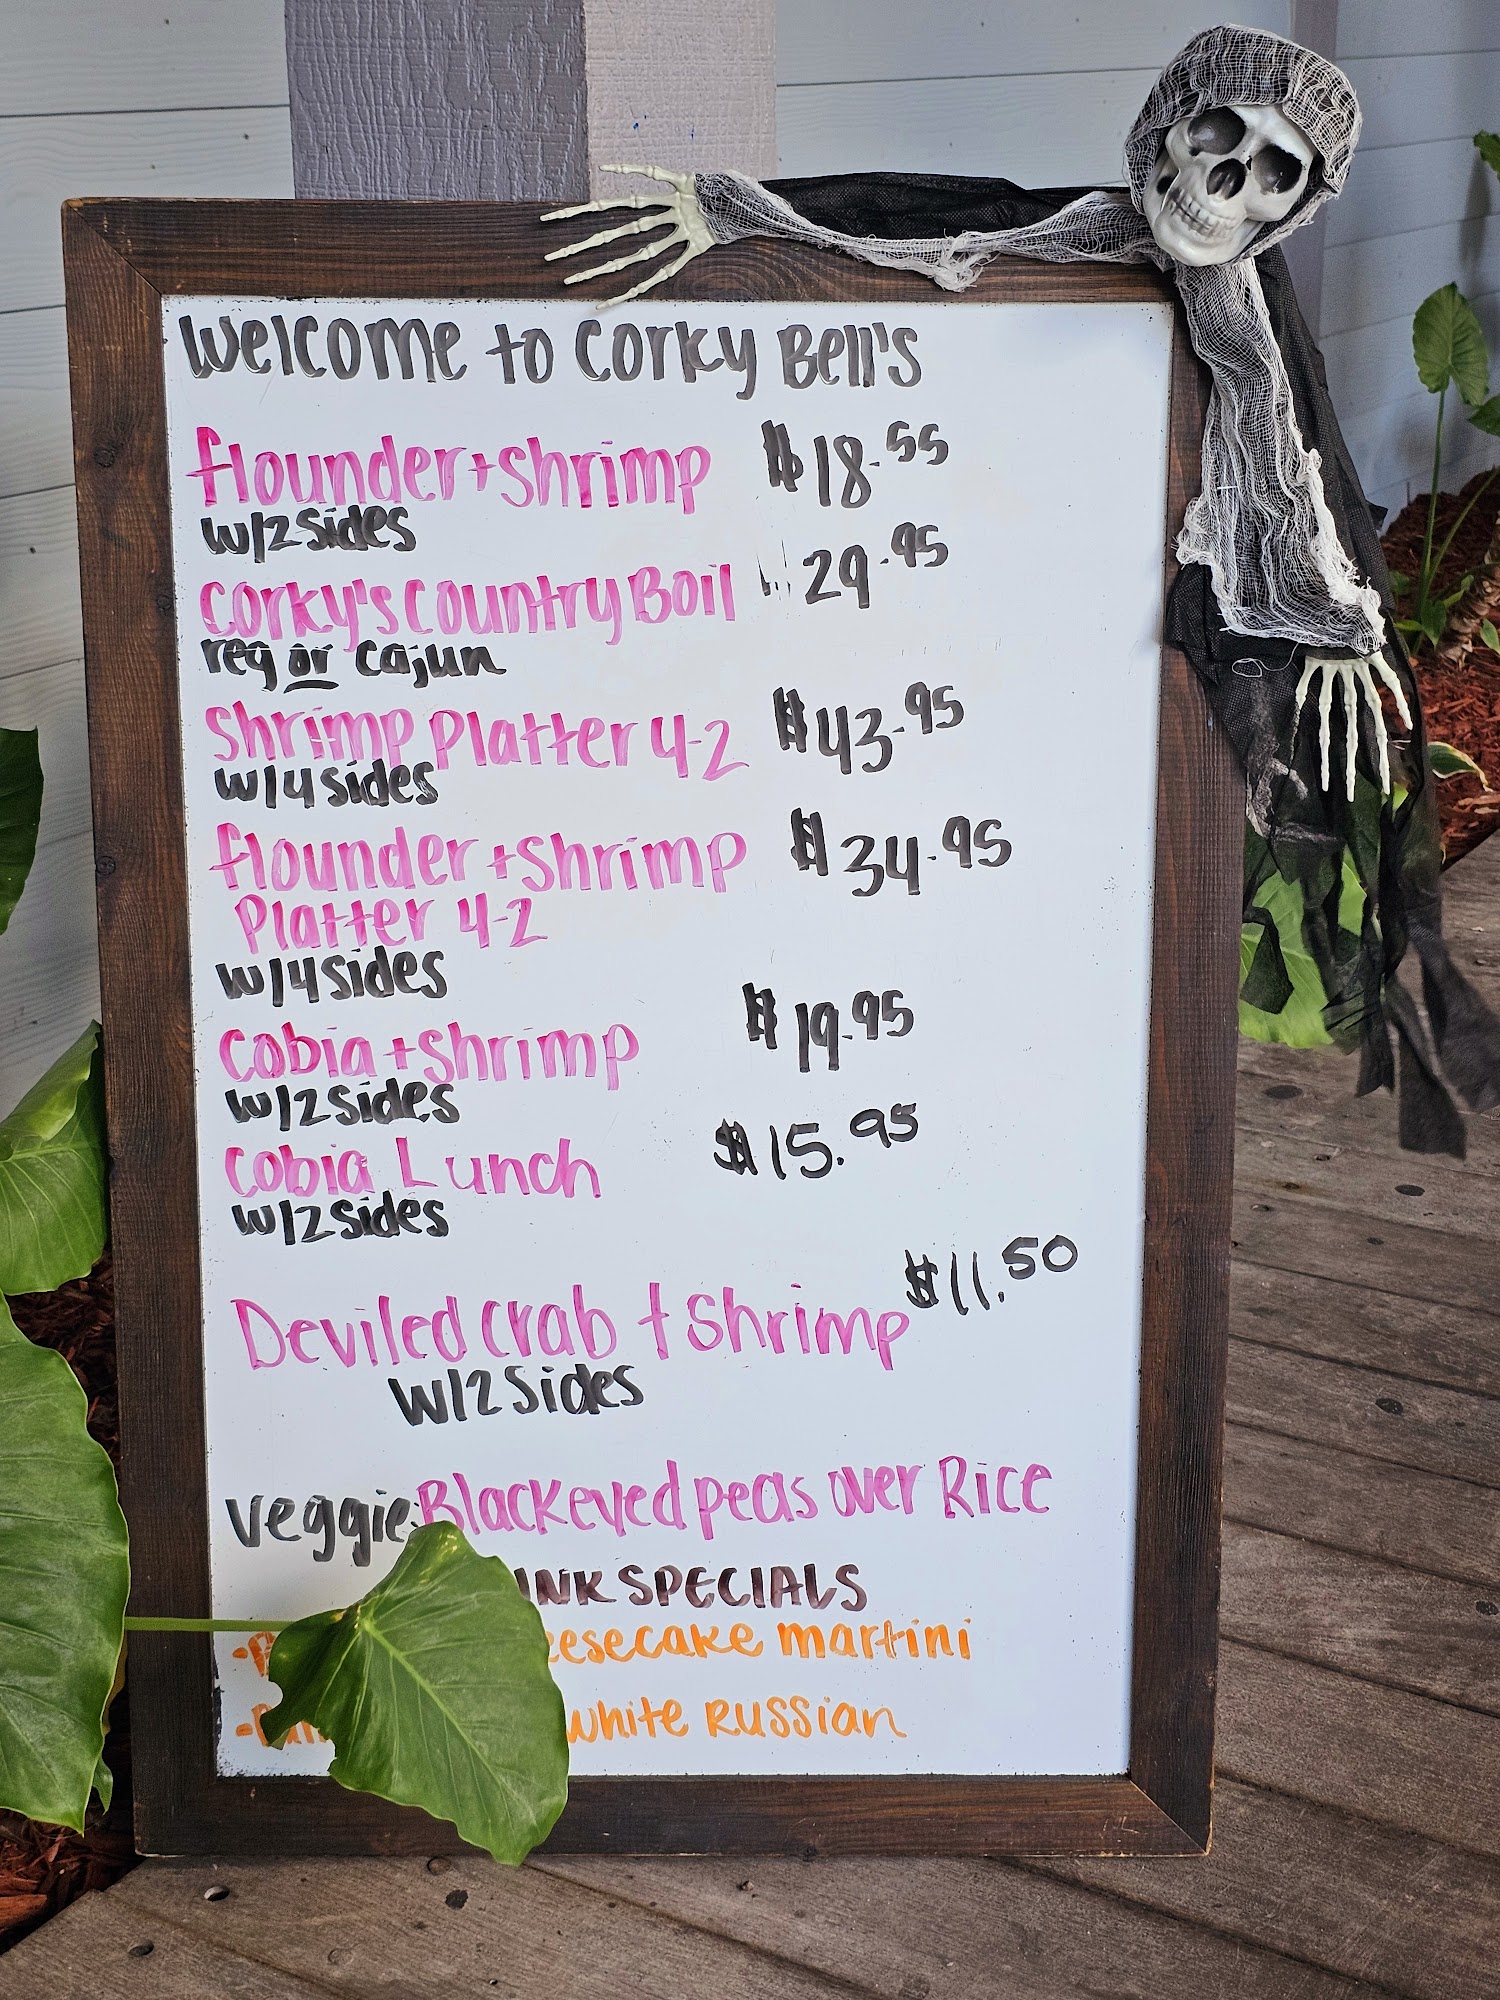 Welcome to Corky Bell's
flounder + shrimp $18.55
w/2 sides
Corky's Country Boil 29.95
reg or cajun
Shrimp Platter 4-2 $43.95
w/4 sides
flounder + shrimp $34.95
Platter 4-2
w/4 sides
Cobia + shrimp $19.95
w/2 sides
Cobia Lunch $15.95
w/2 sides
Deviled crab + shrimp $11.50
w/2 sides
Veggie: Blackeyed peas over Rice
SPECIALS
martini
white Russian